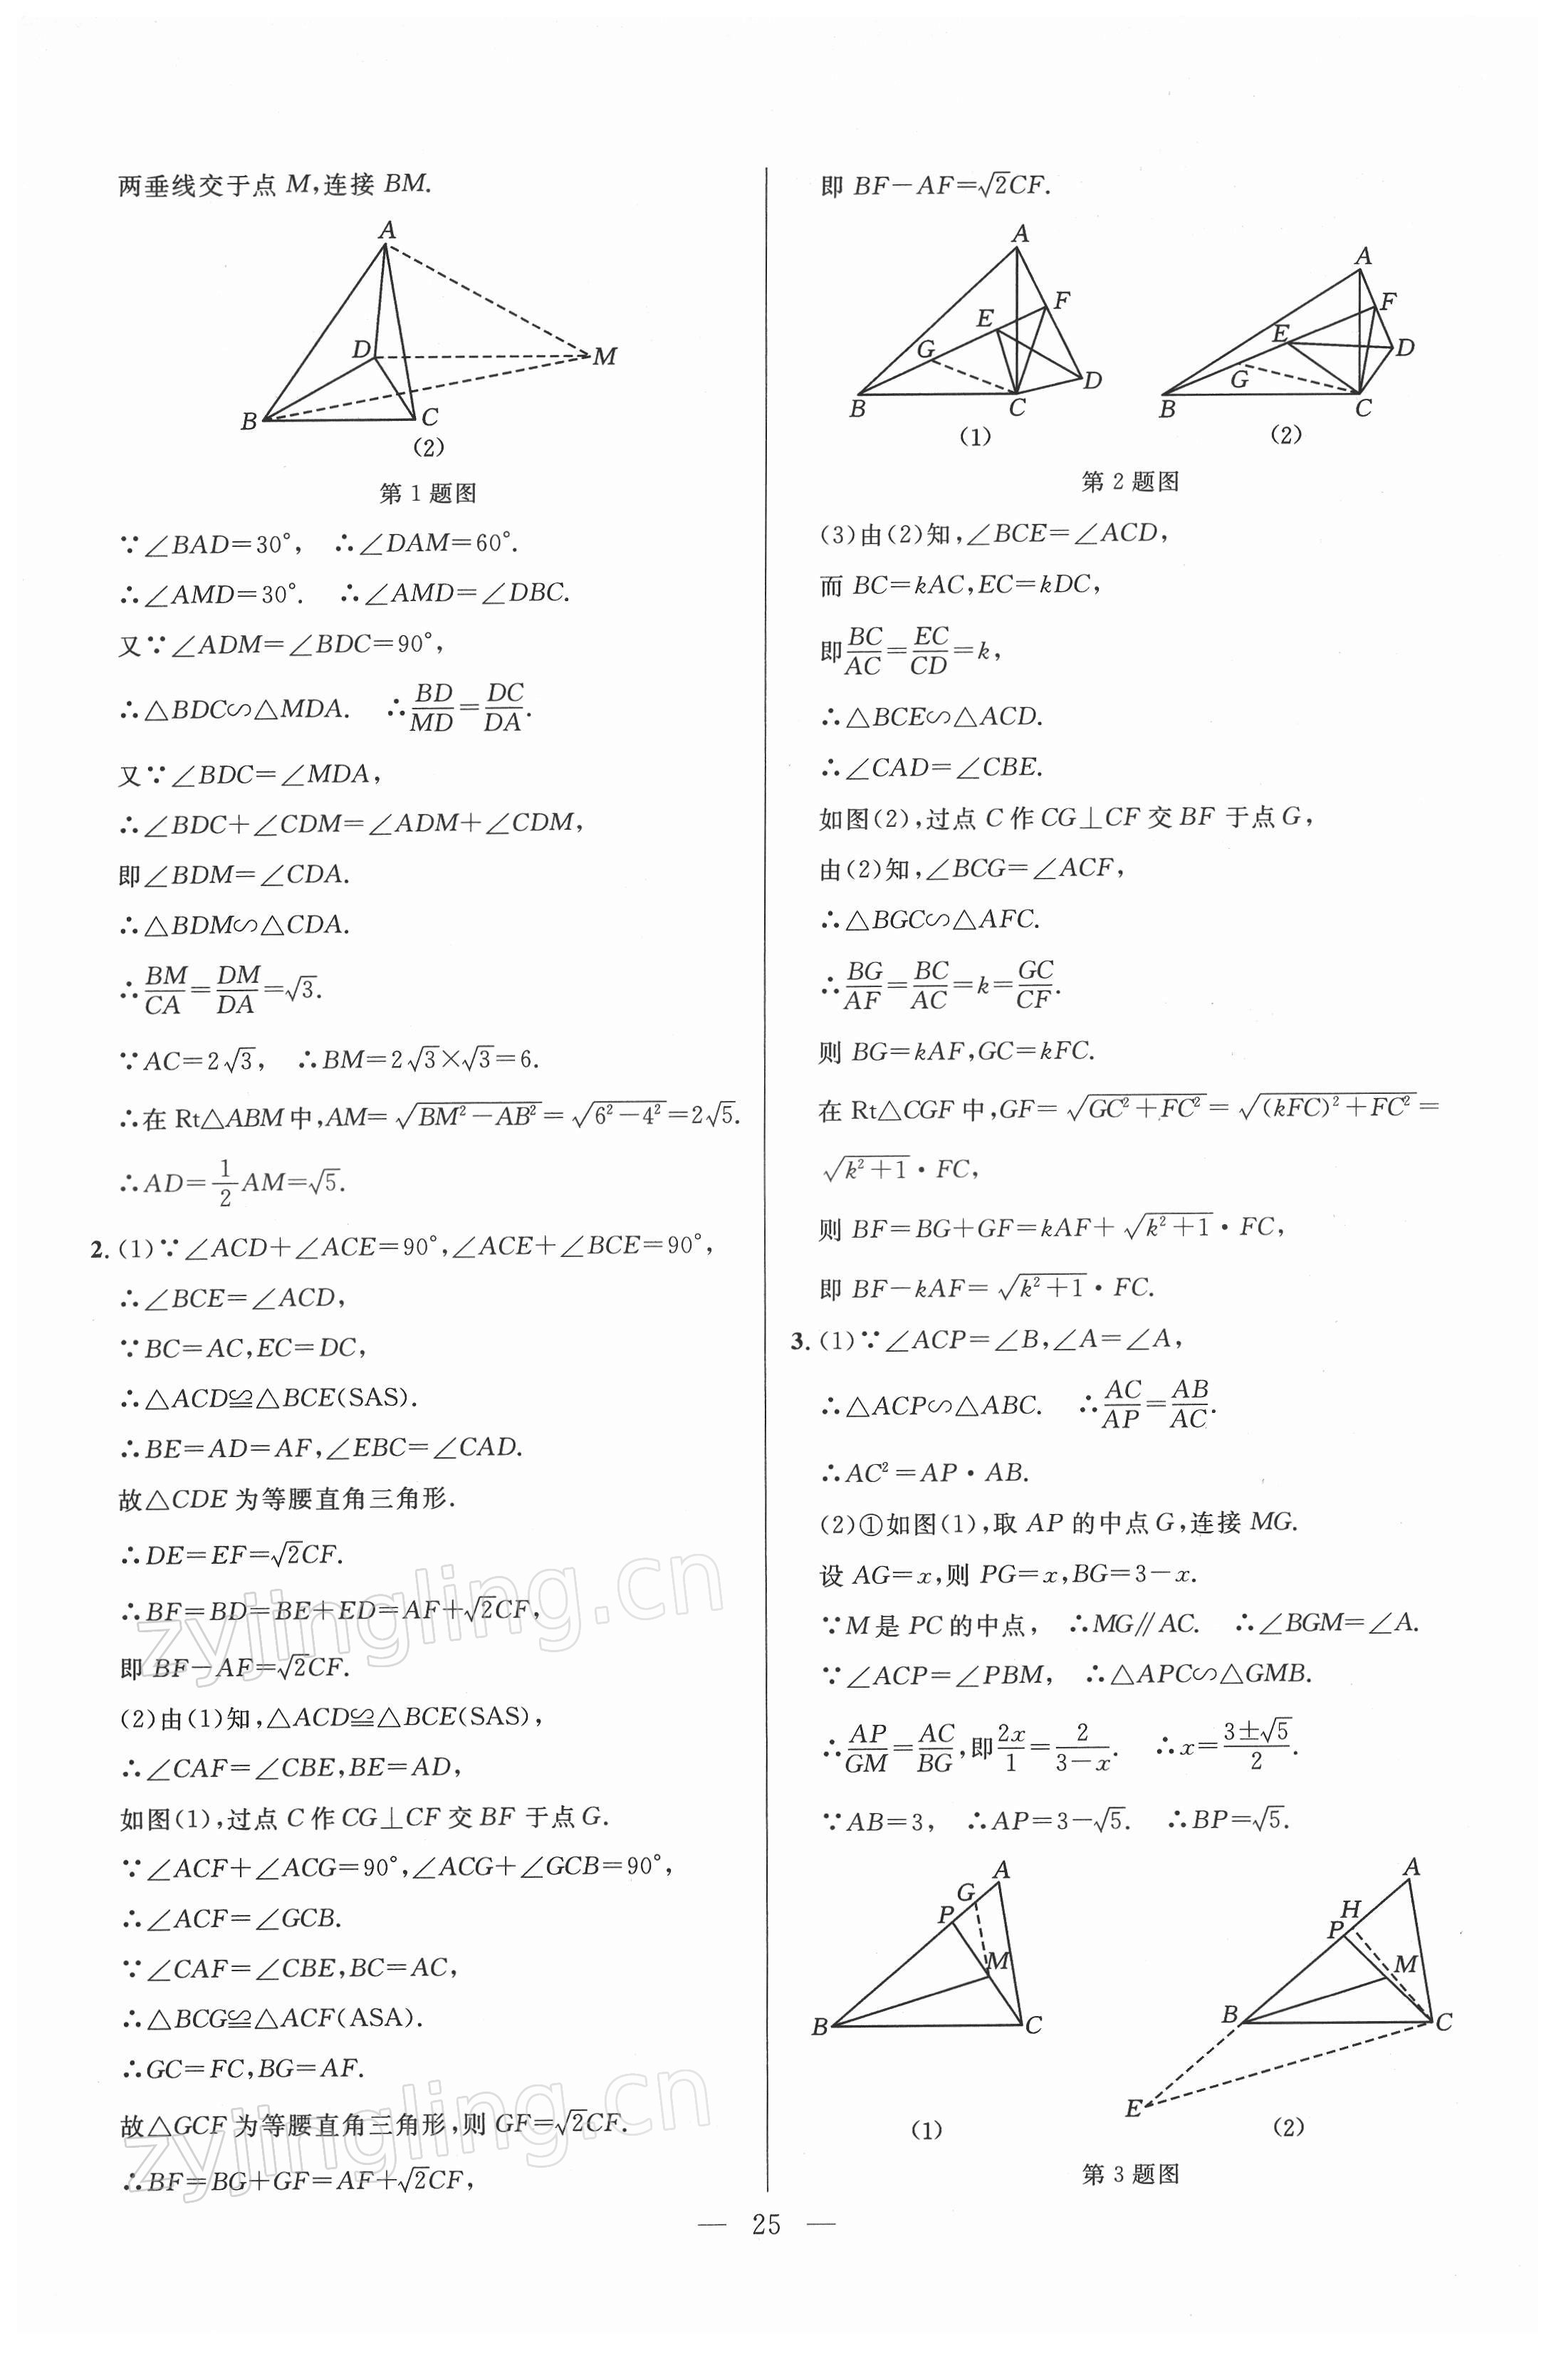 两垂线交于点 M,连接 BM.
A
D
M
B
C
(2)
第 1 题图
∵∠BAD=30°, ∴∠DAM=60°.
∴∠AMD=30°. ∴∠AMD=∠DBC.
又∵∠ADM=∠BDC=90°,
∴△BDC∽△MDA. ∴BD/MD=DC/DA.
又∵∠BDC=∠MDA,
∴∠BDC+∠CDM=∠ADM+∠CDM,
即∠BDM=∠CDA.
∴△BDM∽△CDA.
∴BM/CA=DM/DA=√3.
∵AC=2√3, ∴BM=2√3×√3=6.
∴在 Rt△ABM 中,AM=√(BM²-AB²)=√(6²-4²)=2√5.
∴AD=1/2AM=√5.
2. (1)∵∠ACD+∠ACE=90°,∠ACE+∠BCE=90°,
∴∠BCE=∠ACD,
∵BC=AC,EC=DC,
∴△ACD≌△BCE(SAS).
∴BE=AD=AF,∠EBC=∠CAD.
故△CDE 为等腰直角三角形.
∴DE=EF=√2CF.
∴BF=BD=BE+ED=AF+√2CF,
即 BF-AF=√2CF.
(2)由(1)知,△ACD≌△BCE(SAS),
∴∠CAF=∠CBE,BE=AD,
如图(1),过点 C 作 CG⊥CF 交 BF 于点 G.
∵∠ACF+∠ACG=90°,∠ACG+∠GCB=90°,
∴∠ACF=∠GCB.
∵∠CAF=∠CBE,BC=AC,
∴△BCG≌△ACF(ASA).
∴GC=FC,BG=AF.
故△GCF 为等腰直角三角形,则 GF=√2CF.
∴BF=BG+GF=AF+√2CF,
zyjingling.cn
zyjingling.cn
即 BF-AF=√2CF.
A
F
E
G
D
B
C
(1)
A
F
E
D
G
B
C
(2)
第 2 题图
(3)由(2)知,∠BCE=∠ACD,
而 BC=kAC,EC=kDC,
即BC/AC=EC/CD=k,
∴△BCE∽△ACD.
∴∠CAD=∠CBE.
如图(2),过点 C 作 CG⊥CF 交 BF 于点 G,
由(2)知,∠BCG=∠ACF,
∴△BGC∽△AFC.
∴BG/AF=BC/AC=k=GC/CF.
则 BG=kAF,GC=kFC.
在 Rt△CGF 中,GF=√(GC²+FC²)=√((kFC)²+FC²)=
√(k²+1)·FC,
则 BF=BG+GF=kAF+√(k²+1)·FC,
即 BF-kAF=√(k²+1)·FC.
3. (1)∵∠ACP=∠B,∠A=∠A,
∴△ACP∽△ABC. ∴AC/AP=AB/AC.
∴AC²=AP·AB.
(2)①如图(1),取 AP 的中点 G,连接 MG.
设 AG=x,则 PG=x,BG=3-x.
∵M 是 PC 的中点, ∴MG∥AC. ∴∠BGM=∠A.
∵∠ACP=∠PBM, ∴△APC∽△GMB.
∴AP/GM=AC/BG,即2x/1=2/(3-x). ∴x=(3±√5)/2.
∵AB=3, ∴AP=3-√5. ∴BP=√5.
A
G
P
M
B
C
(1)
A
H
P
M
B
C
E
(2)
第 3 题图
— 25 —